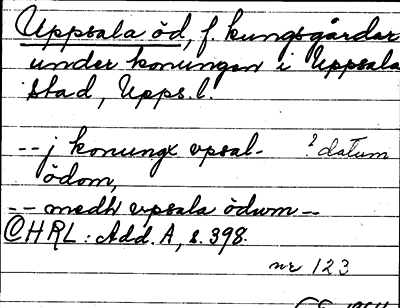 Uppsala öd, f. kungsgårdar
under konungen i Uppsala
stad, Upps. l.
-- j konungx vpsal- ? datum
ödom,
-- medh vpsala ödum --
©HRL: Add. A, s. 398.
nr 123